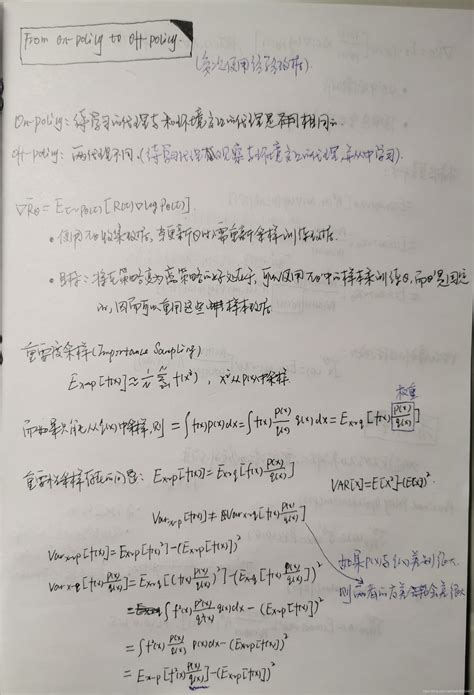 From on-policy to off-policy.
(多次使用经验数据)
On-policy: 待学习的代理与和环境交互的代理是相同的
off-policy: 两代理不同. (待学习代理观察与环境交互的代理, 并从中学习).
∇R̄θ = E_{τ~pθ(τ)}[R(τ)∇log pθ(τ)]
• 使用πθ收集数据, 当更新θ时, 需重新采样训练数据.
• 目标: 将在策略变为离策略的好处在于, 可以使用πθ'中的样本来训练θ, 而θ'是固定
的, 因而可以重用这些样本数据
重要度采样(Importance Sampling)
E_{x~p}[f(x)] ≈ 1/N Σ_{i=1}^{N} f(x^i), x^i从p(x)中采样
而如果只能从q(x)中采样, 则 = ∫f(x)p(x)dx = ∫f(x) p(x)/q(x) q(x)dx = E_{x~q}[f(x) p(x)/q(x)]
权重
重要性采样存在的问题: E_{x~p}[f(x)] = E_{x~q}[f(x) p(x)/q(x)]
VAR[X]=E[X²]-(E[X])².
Var_{x~p}[f(x)] ≠ Var_{x~q}[f(x) p(x)/q(x)]
Var_{x~p}[f(x)] = E_{x~p}[f(x)²]-(E_{x~p}[f(x)])²
如果p(x)与q(x)差别很大
则两者的方差会差很大
Var_{x~q}[f(x) p(x)/q(x)] = E_{x~q}[(f(x) p(x)/q(x))²]-(E_{x~q}[f(x) p(x)/q(x)])²
= ∫f²(x) p²(x)/q²(x) q(x)dx - (E_{x~p}[f(x)])²
= ∫f²(x) p(x)/q(x) p(x)dx - (E_{x~p}[f(x)])²
= E_{x~p}[f²(x) p(x)/q(x)]-(E_{x~p}[f(x)])²